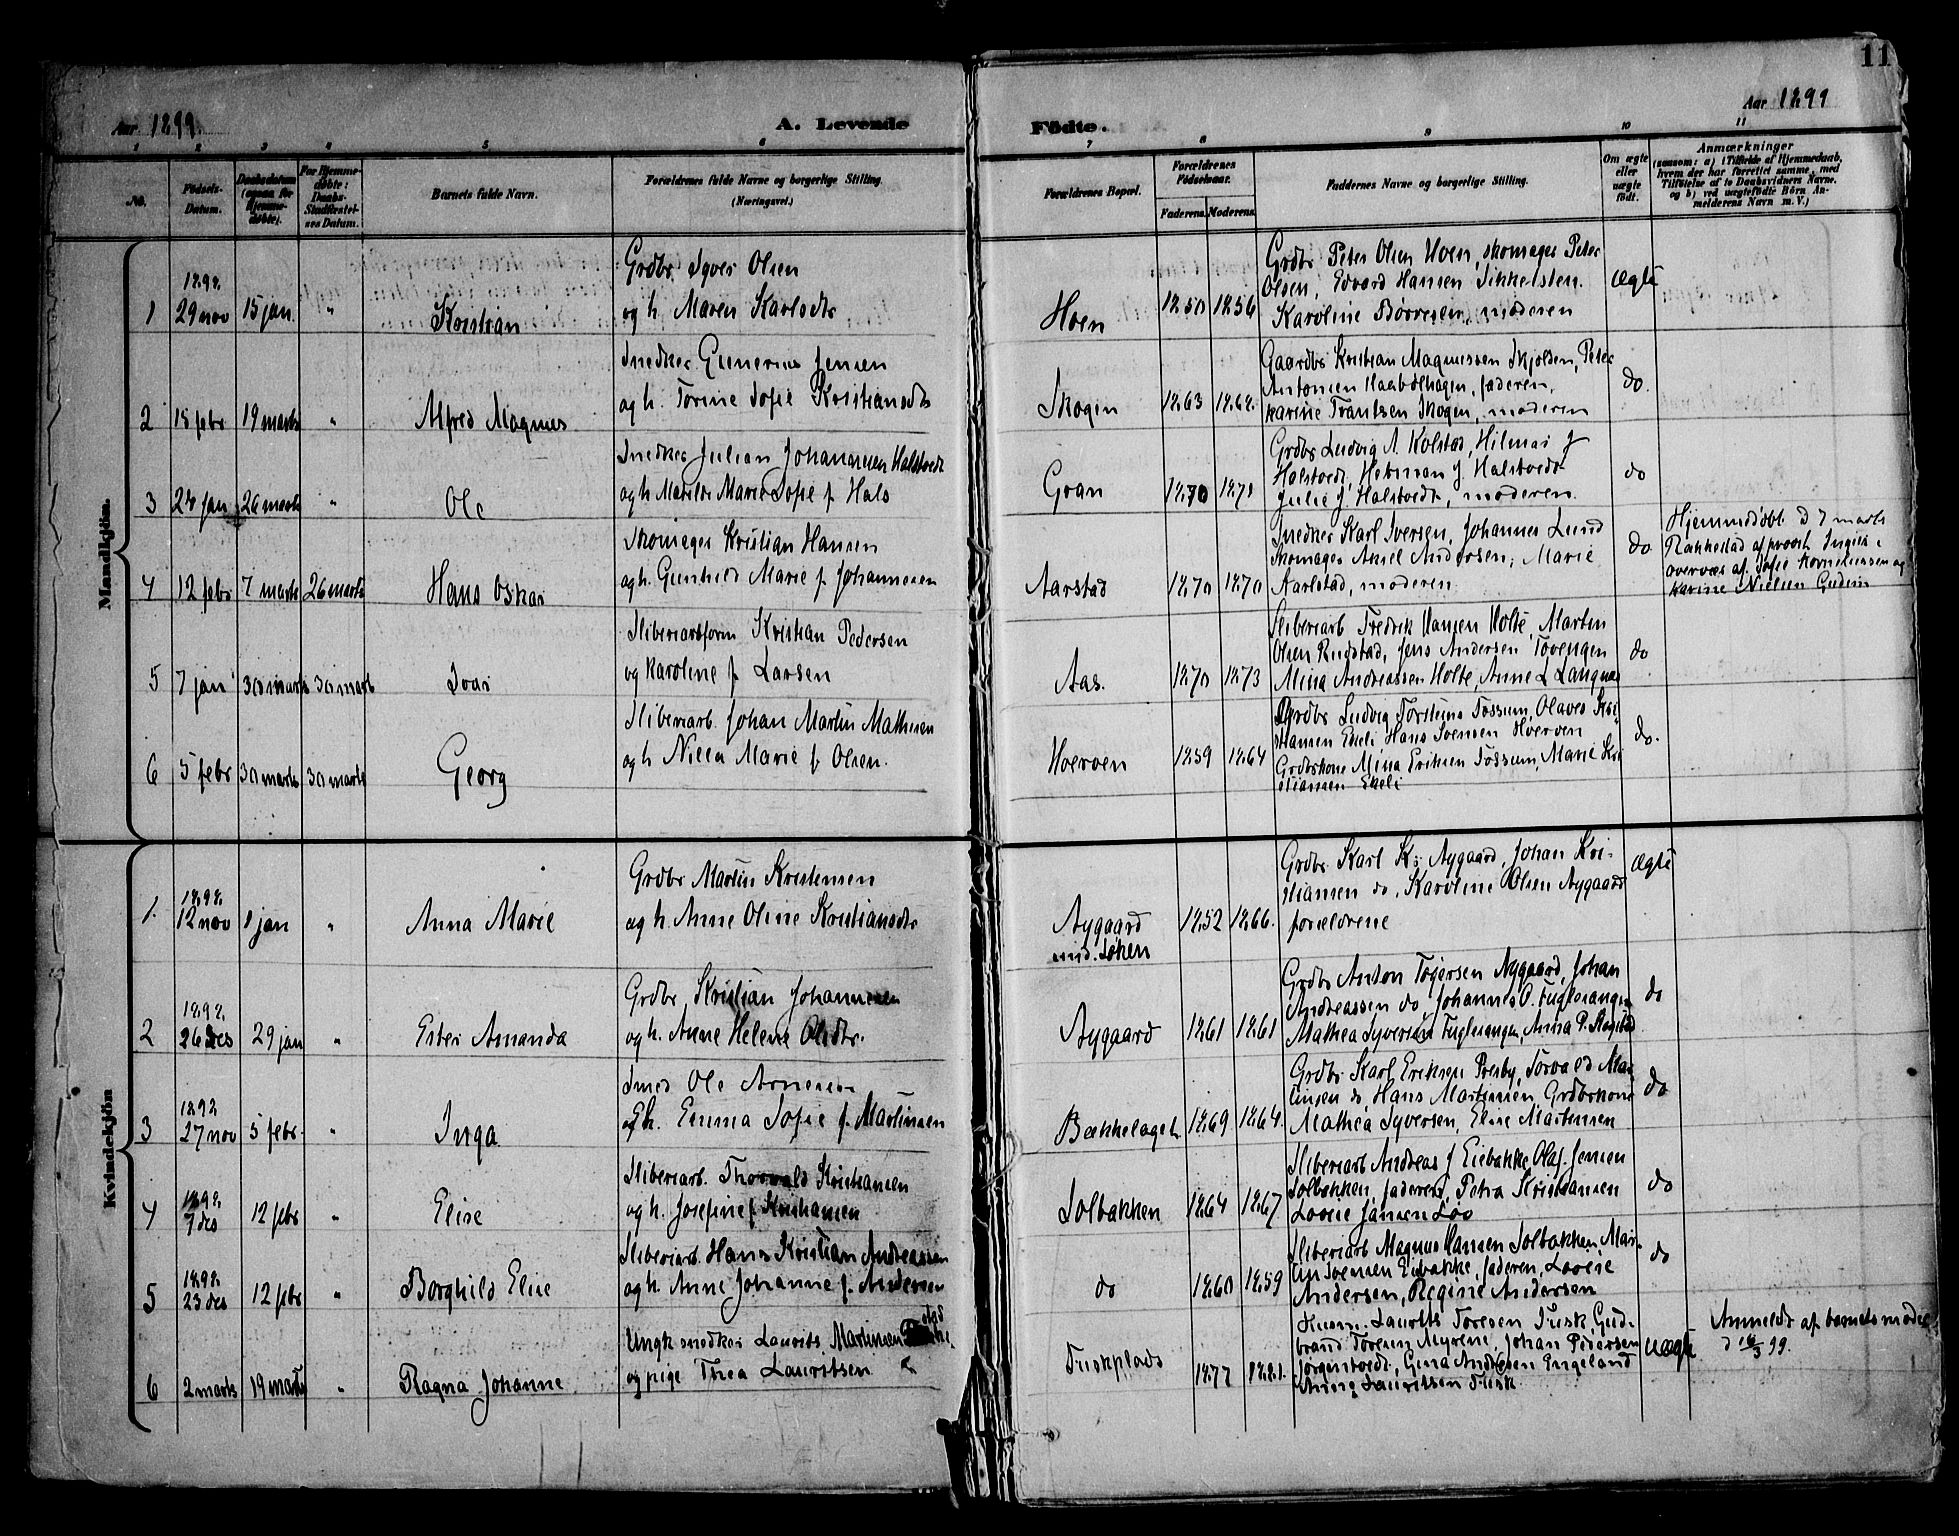 11
Aar 1899.
A. Levende
Födte.
Aar 1899
1 2 3 4 5 6
7 8 9 10 11
No.
Födsels-Datum.
Daabsdatum (ogsaa for Hjemme-döbte).
For Hjemme-döbte: Daabs-Stadfæstel-ses Datum.
Barnets fulde Navn.
Forældrenes fulde Navne og borgerlige Stilling.
(Næringsvei.)
Forældrenes Bopæl.
Forældrenes Födselsaar.
Faderens. Moderens.
Faddernes Navne og borgerlige Stilling.
Om ægte eller uægte födt.
Anmærkninger
(saasom: a) i Tilfælde af Hjemmedaab,
hvem der har forrettet samme, med
Tilföielse af to Daabsvidners Navne.
og b) ved uægtefödte Börn An-
melderens Navn m. V.)
Mandkjön.
1 1898. 29 nov 15 jan. " Kristian
Grdbr Syver Olsen
og h. Maren Karlsdtr
Hoen 1850 1856
Grdbr Peter Olsen Hoen, skomager Peter
Olsen, Edvard Hansen
Karoline Börresen, moderen
ægte
2 15 febr 19 marts " Alfred Magnus
Snedker Gunerius Jensen
og h. Torine Sofie Kristiansdtr
Skogen 1863 1868.
Gaardbr Kristian Magnussen Skjolden, Peter
Antonsen Haabølhagen, faderen,
Karine Frantsen Skogen, moderen
do.
3 28 jan 26 marts " Ole
Snedker Julian Johannesen Halstvedt
og h. Matilde Marie Sofie f. Hals
Gran 1870 1878
Grdbr Ludvig A. Kolstad, Hilmar J
Halstvedt, Herman J. Halstvedt
Julie J. Halstvedt, moderen.
do
4 12 febr 7 marts 26 marts Hans Oskar
Skomager Kristian Hansen
og h. Gunhild Marie f. Johannesen
Aarstad 1870 1870
Snedker Karl Iversen, Johannes Lund
Skomager Anne Andersen, Marie
Karlstad, moderen
do.
Hjemmedöbt d 7 marts
Rakkestad af provst
overvær af Sofie Korneliussen og
Karine Nielsen Gudim
5 7 jan 30 marts 30 marts Ivar
Sliberiarbform Kristian Pedersen
og Karoline f. Larsen
Aas. 1870 1873
Sliberiarb Fredrik Hansen Holte, Martin
Olsen Rudstad, Jens Andersen Tovengen
Mina Andreassen Holte, Anne L Langnæs
do
6 5 febr 30 marts 30 marts Georg
Sliberiarb. Johan Martin Mathisen
og h Nilla Marie f. Olsen.
Hverven 1859 1864
Grdbr Ludvig Torstens Fossum, Olaves Kri-
stiansen Ekeli, Hans Svensen Hverven
Grdbrkone Mina Eriksen Fossum, Marie Kri
stiansen Ekeli
do.
Kvindekjön
1. 1898. 12 nov 1 jan " Anna Marie
Grdbr Martin Kristensen
og h. Anne Oline Kristiansdtr
Nygaard
und. Löken 1852 1866.
Grdbr Karl Kr. Nygaard, Johan Kri-
stiansen do, Karoline Olsen Nygaard
forældrene
ægte
2 1898. 26 des 29 jan " Ester Amanda
Grdbr, Kristian Johannesen
og h. Anne Helene Olsdtr.
Nygaard 1861 1861
Grdbr Anton Tojersen Nygaard, Johan
Andreassen do, Johannes O. Fuglerangen
Mathea Syversen Fuglerangen, Anna P.
do
3 1898 27 nov 5 febr. " Inga
Smed Ole Arnesen
og h. Emma Sofie f. Martinsen
Bækkelaget 1869 1864.
Grdbr Karl Eriksen Torvald Mar-
tinsen do, Hans Martinsen, Grdbrkone
Mathea Syversen, Elise Martinsen
do
4 1898. 7 des 12 febr " Elise
Sliberiarb. Thorvald Kristiansen
og h. Josefine f Kristiansen
Solbakken 1864 1867
Sliberiarb Andreas J Eiebakke, Olaf Jensen
Solbakken, faderen, Petra Kristiansen
Lovise Jansen Löv
do
5 1898. 23 des 12 febr " Borghild Elise
Sliberiarb. Hans Kristian Andreassen
og h. Anne Johanne f. Andersen
do 1860 1859
Sliberiarb Magnus Hansen Solbakken, Mar-
tin Svensen Eiebakke, faderen, Lovise
Andersen, Regine Andersen
do
6 2 marts 19 marts " Ragna Johanne
Ungk snedker Laurits Martinsen
og pige Thea Lauritsen
Tuskplads 1877 1881.
Husm. Laurits Toresen Tusk, Gud-
brand Toresen Myrene, Johan Pedersen
Jörgentvedt, Gina Andresen Engeland
Anna Lauritsen Tusk
uægte
Anmeldt af barnets moder
d 16/3 99.